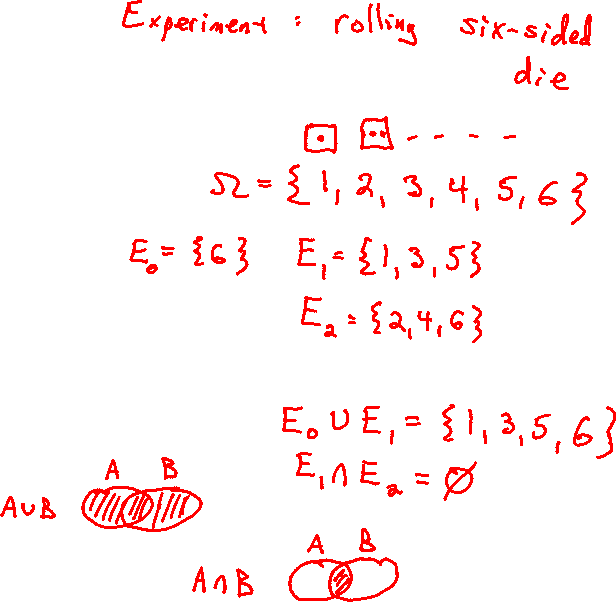 Experiment : rolling six-sided
die
Ω = {1, 2, 3, 4, 5, 6}
E₀ = {6} E₁ = {1, 3, 5}
E₂ = {2, 4, 6}
E₀ ∪ E₁ = {1, 3, 5, 6}
E₁ ∩ E₂ = ∅
A B
A∪B
A B
A∩B